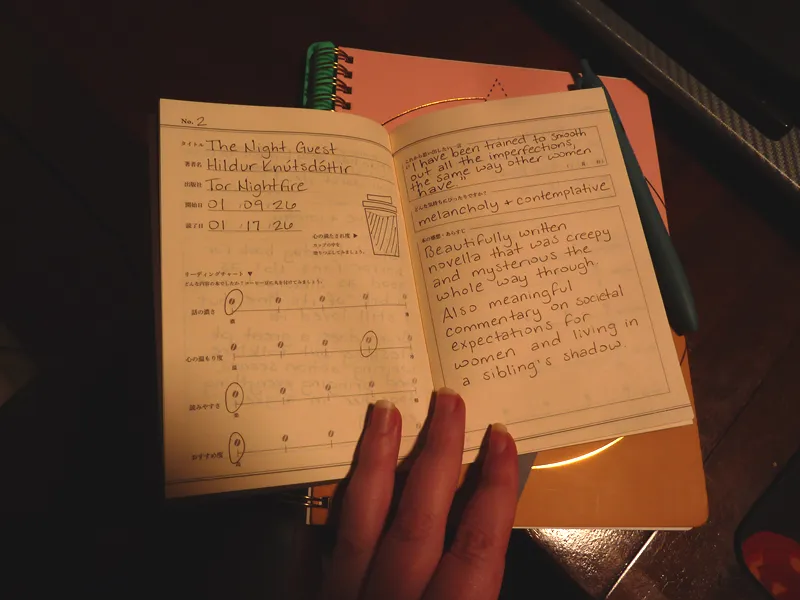 No. 2
タイトル The Night Guest
著者名 Hildur Knútsdóttir
出版社 Tor Nightfire
開始日 01 / 09 / 26
読了日 01 / 17 / 26
心の満たされ度 ▶
カップの中を
塗りつぶしてみましょう。
リーディングチャート ▼
話の濃さ
心の温もり度
読みやすさ
おすすめ度
"I have been trained to smooth
out all the imperfections,
the same way other women
have."
melancholy + contemplative
本の感想・あらすじ
Beautifully written
novella that was creepy
and mysterious the
whole way through.
Also meaningful
commentary on societal
expectations for
women and living in
a sibling's shadow.